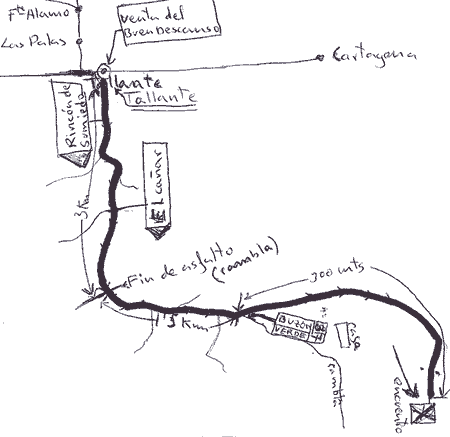 Fte Alamo
Las Palas
Venta del
Buen Descanso
Cartagena
Tallante
Rincón de
Sumiedo
El cañar
3 Km
Fin de asfalto
(rambla)
300 mts
3 Km
BUZON
VERDE
encuentro